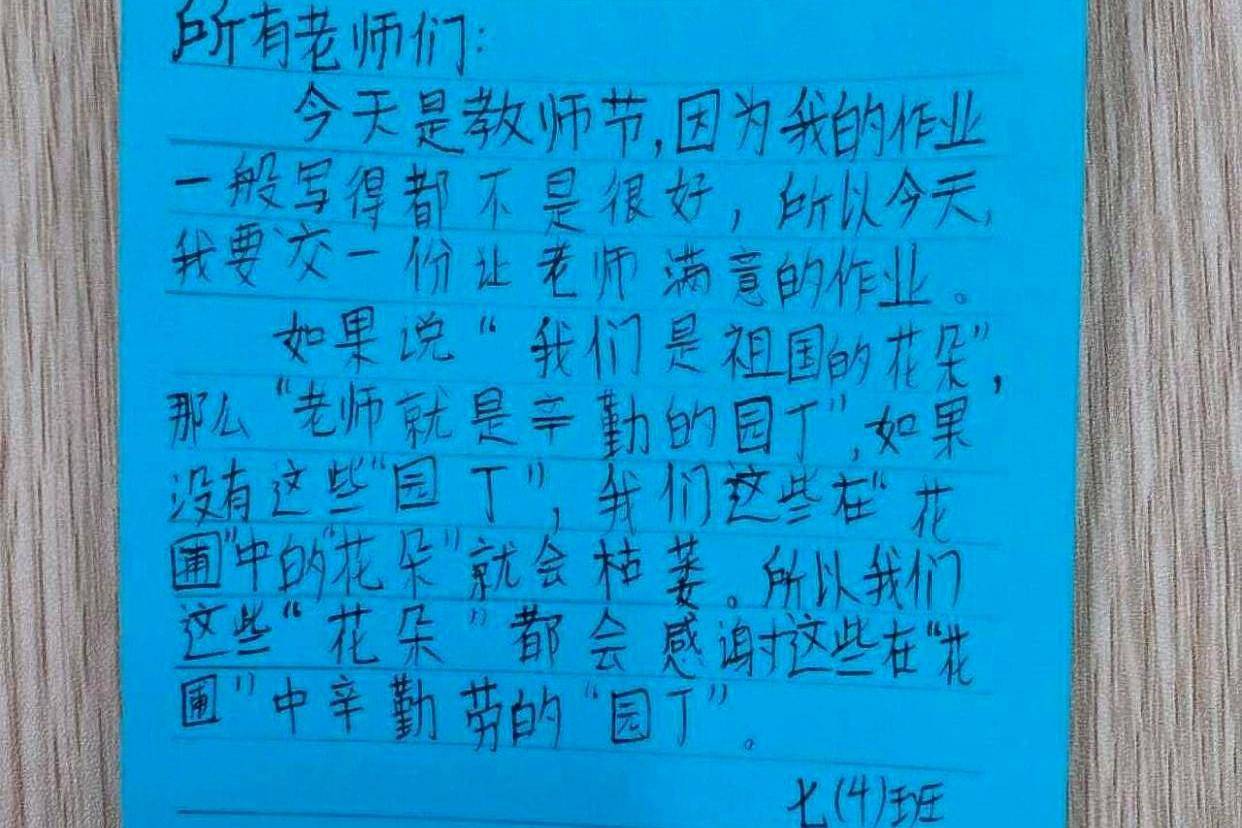 所有老师们：
今天是教师节，因为我的作业
一般写得都不是很好，所以今天，
我要交一份让老师满意的作业。
如果说“我们是祖国的花朵”，
那么“老师就是辛勤的园丁”，如果
没有这些“园丁”，我们这些在“花
圃”中的“花朵”就会枯萎。所以我们
这些“花朵”都会感谢这些在“花
圃”中辛勤劳的“园丁”。
七(4)班